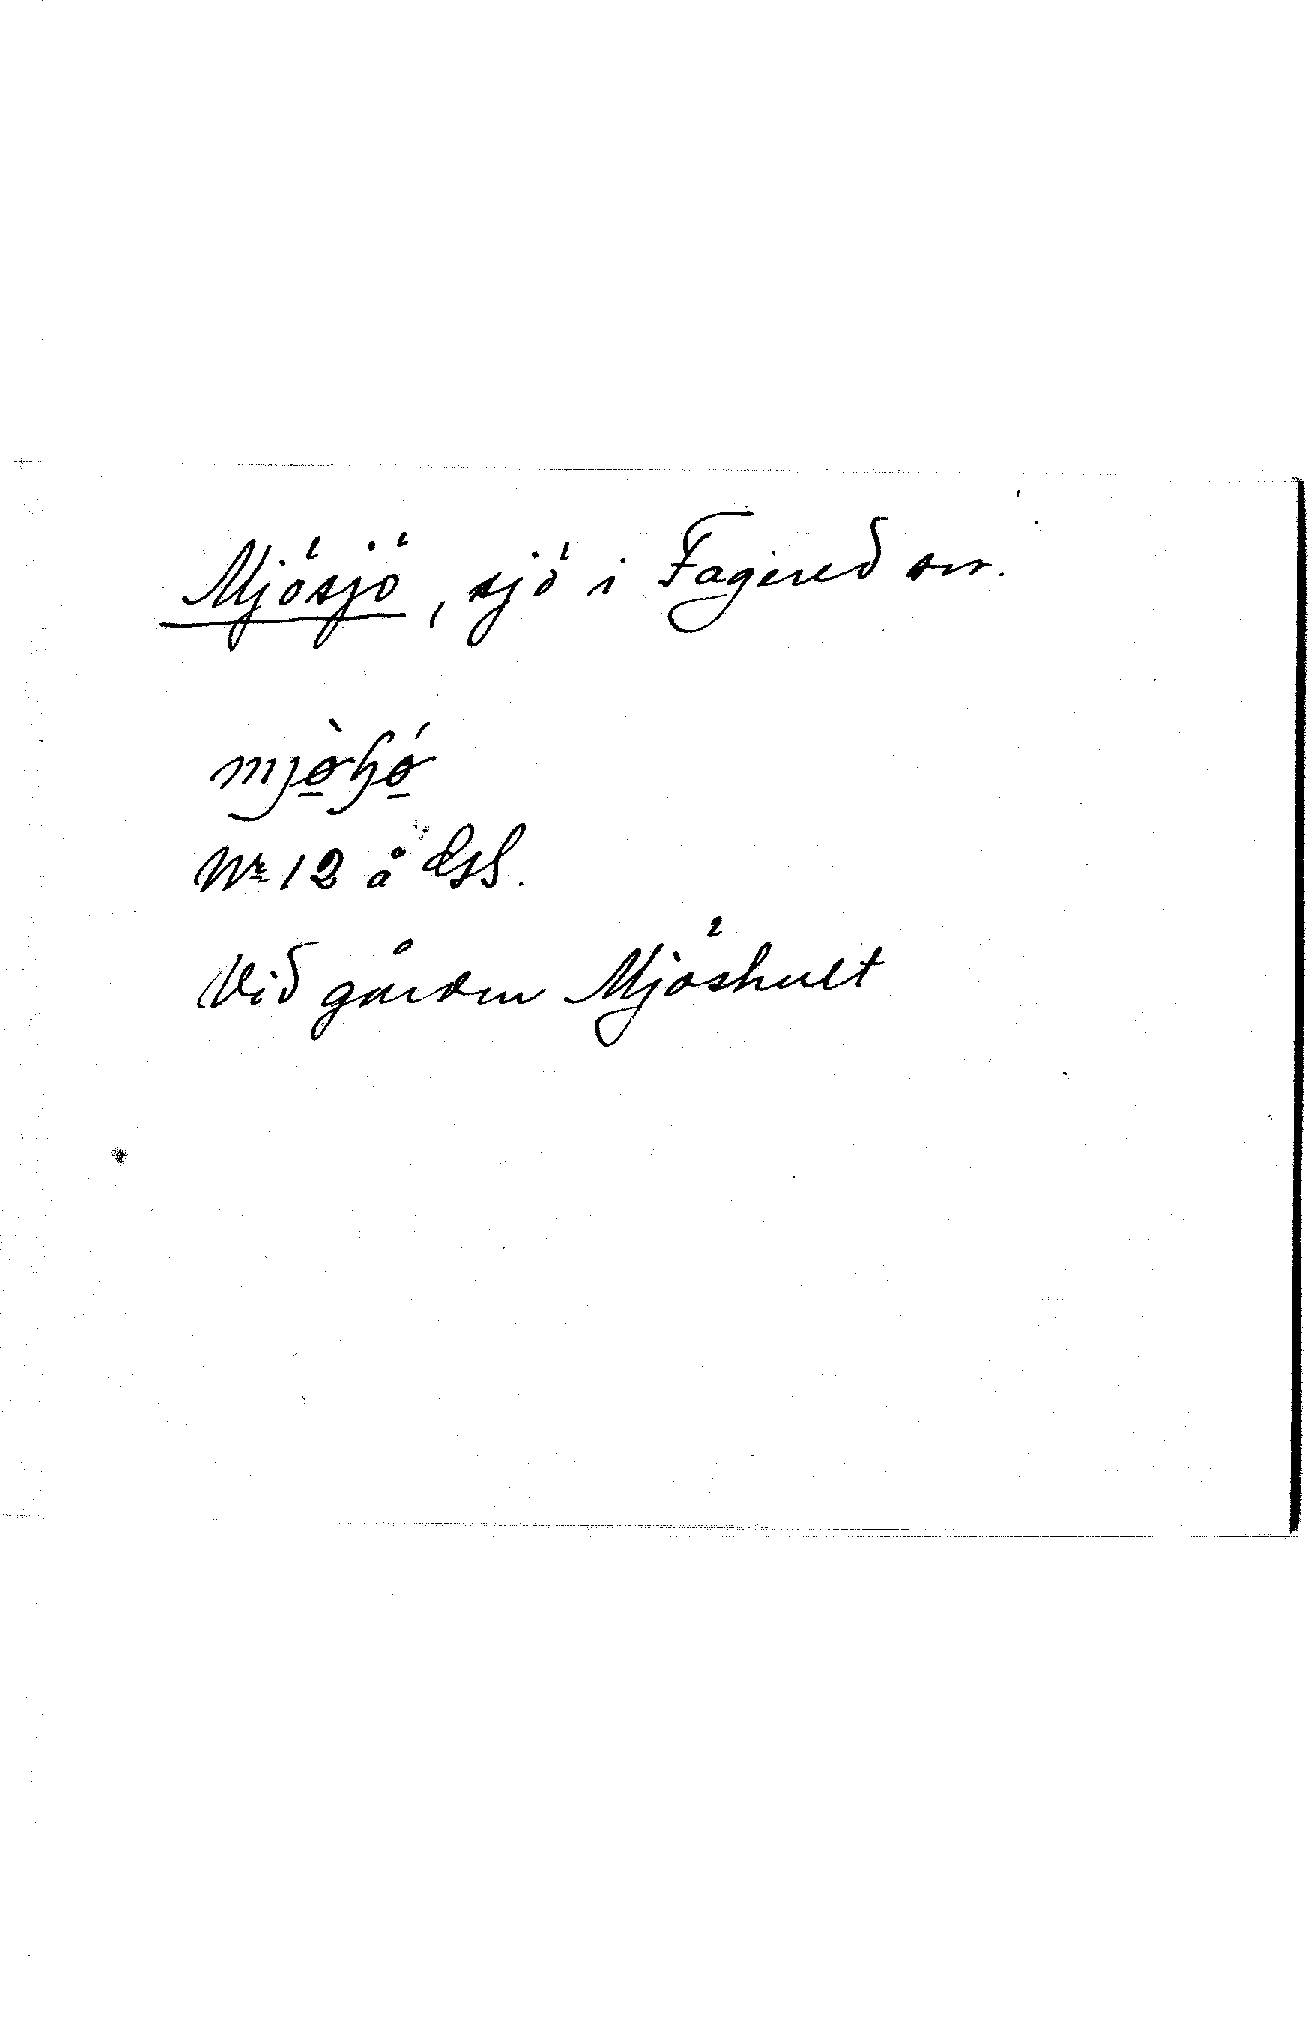 Mjösjö, sjö i Fagered sn.
mjø̀ɧǿ
Nr 12 å GSS.
Vid gården Mjöshult